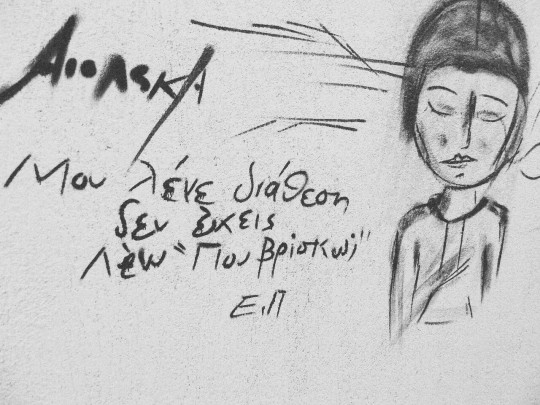 Μου λένε διάθεση
δεν έχεις
Λέω "Που βρίσκω;"
Ε.Π